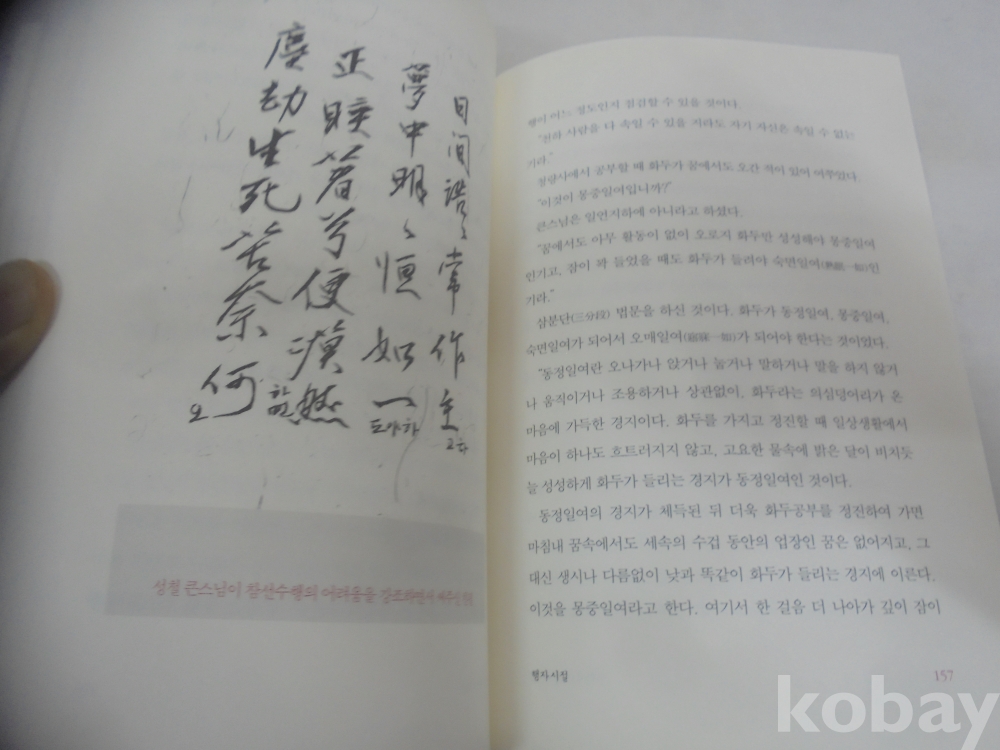 日间浩々常作主
夢中明々恒如一
正睡着兮便漠然
塵劫生死苦奈何
고
도
하면
오
성철 큰스님이 참선수행의 어려움을 강조하면서
행이 어느 정도인지 점검할 수 있을 것이다.
"천하 사람을 다 속일 수 있을 지라도 자기 자신은 속일 수 없는
기라."
청량사에서 공부할 때 화두가 꿈에서도 오간 적이 있어 여쭈었다.
"이것이 몽중일여입니까?"
큰스님은 일언지하에 아니라고 하셨다.
"꿈에서도 아무 활동이 없이 오로지 화두만 성성해야 몽중일여
인기고, 잠이 꽉 들었을 때도 화두가 들려야 숙면일여(熟眠一如)인
기라."
삼분단(三分段) 법문을 하신 것이다. 화두가 동정일여, 몽중일여,
숙면일여가 되어서 오매일여(寤寐一如)가 되어야 한다는 것이었다.
"동정일여란 오나가나 앉거나 눕거나 말하거나 말을 하지 않거
나 움직이거나 조용하거나 상관없이, 화두라는 의심덩어리가 온
마음에 가득한 경지이다. 화두를 가지고 정진할 때 일상생활에서
마음이 하나도 흐트러지지 않고, 고요한 물속에 밝은 달이 비치듯
늘 성성하게 화두가 들리는 경지가 동정일여인 것이다.
동정일여의 경지가 체득된 뒤 더욱 화두공부를 정진하여 가면
마침내 꿈속에서도 세속의 수겁 동안의 업장인 꿈은 없어지고, 그
대신 생시나 다름없이 낮과 똑같이 화두가 들리는 경지에 이른다.
이것을 몽중일여라고 한다. 여기서 한 걸음 더 나아가 깊이 잠이
행자시절
157
kobay